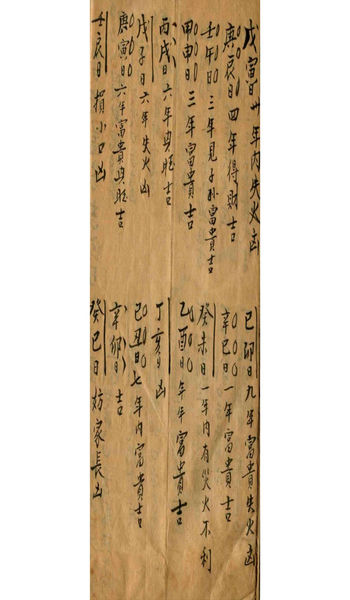 戊寅日卅年内失火凶
庚辰日四年得財吉
壬午日三年見子孫富貴吉
甲申日三年富貴吉
丙戌日六年興旺吉
戊子日六年失火凶
庚寅日六年富貴興旺吉
壬辰日損小口凶
己卯日九年富貴失火凶
辛巳日一年富貴吉
癸未日一年内有災火不利
乙酉日年年富貴吉
丁亥日凶
己丑日七年内富貴吉
辛卯日吉
癸巳日妨家長凶